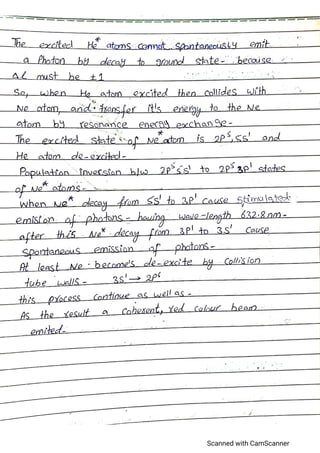 The excited He* atoms cannot spontaneously emit
a Photon by decay to ground state- because
ΔL must be ±1
So, when He atom excited then collides with
Ne atom, and transfer it's energy to the Ne
atom by resonance energy exchange-
The excited state of Ne* atom is 2P⁵,5S¹ and
He atom de-excited-
Population inversion b/w 2P⁵5S¹ to 2P⁵3P¹ states
of Ne* atoms-
When Ne* decay from 5S¹ to 3P¹ cause stimulated
emission of photons- having wave-length 632.8nm-
after this Ne* decay from 3P¹ to 3S¹ cause
spontaneous emission of photons-
At least Ne become's de-excite by collision
tube walls- 3S¹ → 2P⁶
this process continue as well as-
As the result a coherent, red colour beam
emited-
Scanned with CamScanner